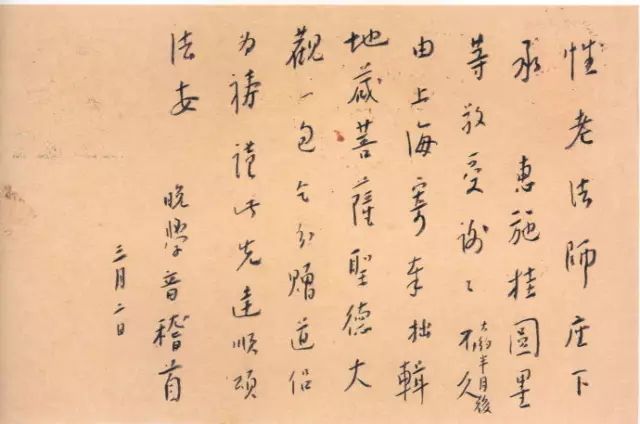 性老法師座下
承 惠施桂圓墨
等敬受謝〻不久
大約半月後
由上海寄奉拙輯
地藏菩薩聖德大
觀一包乞分贈道侶
為禱謹此先達順頌
法安 晚學音稽首
三月二日